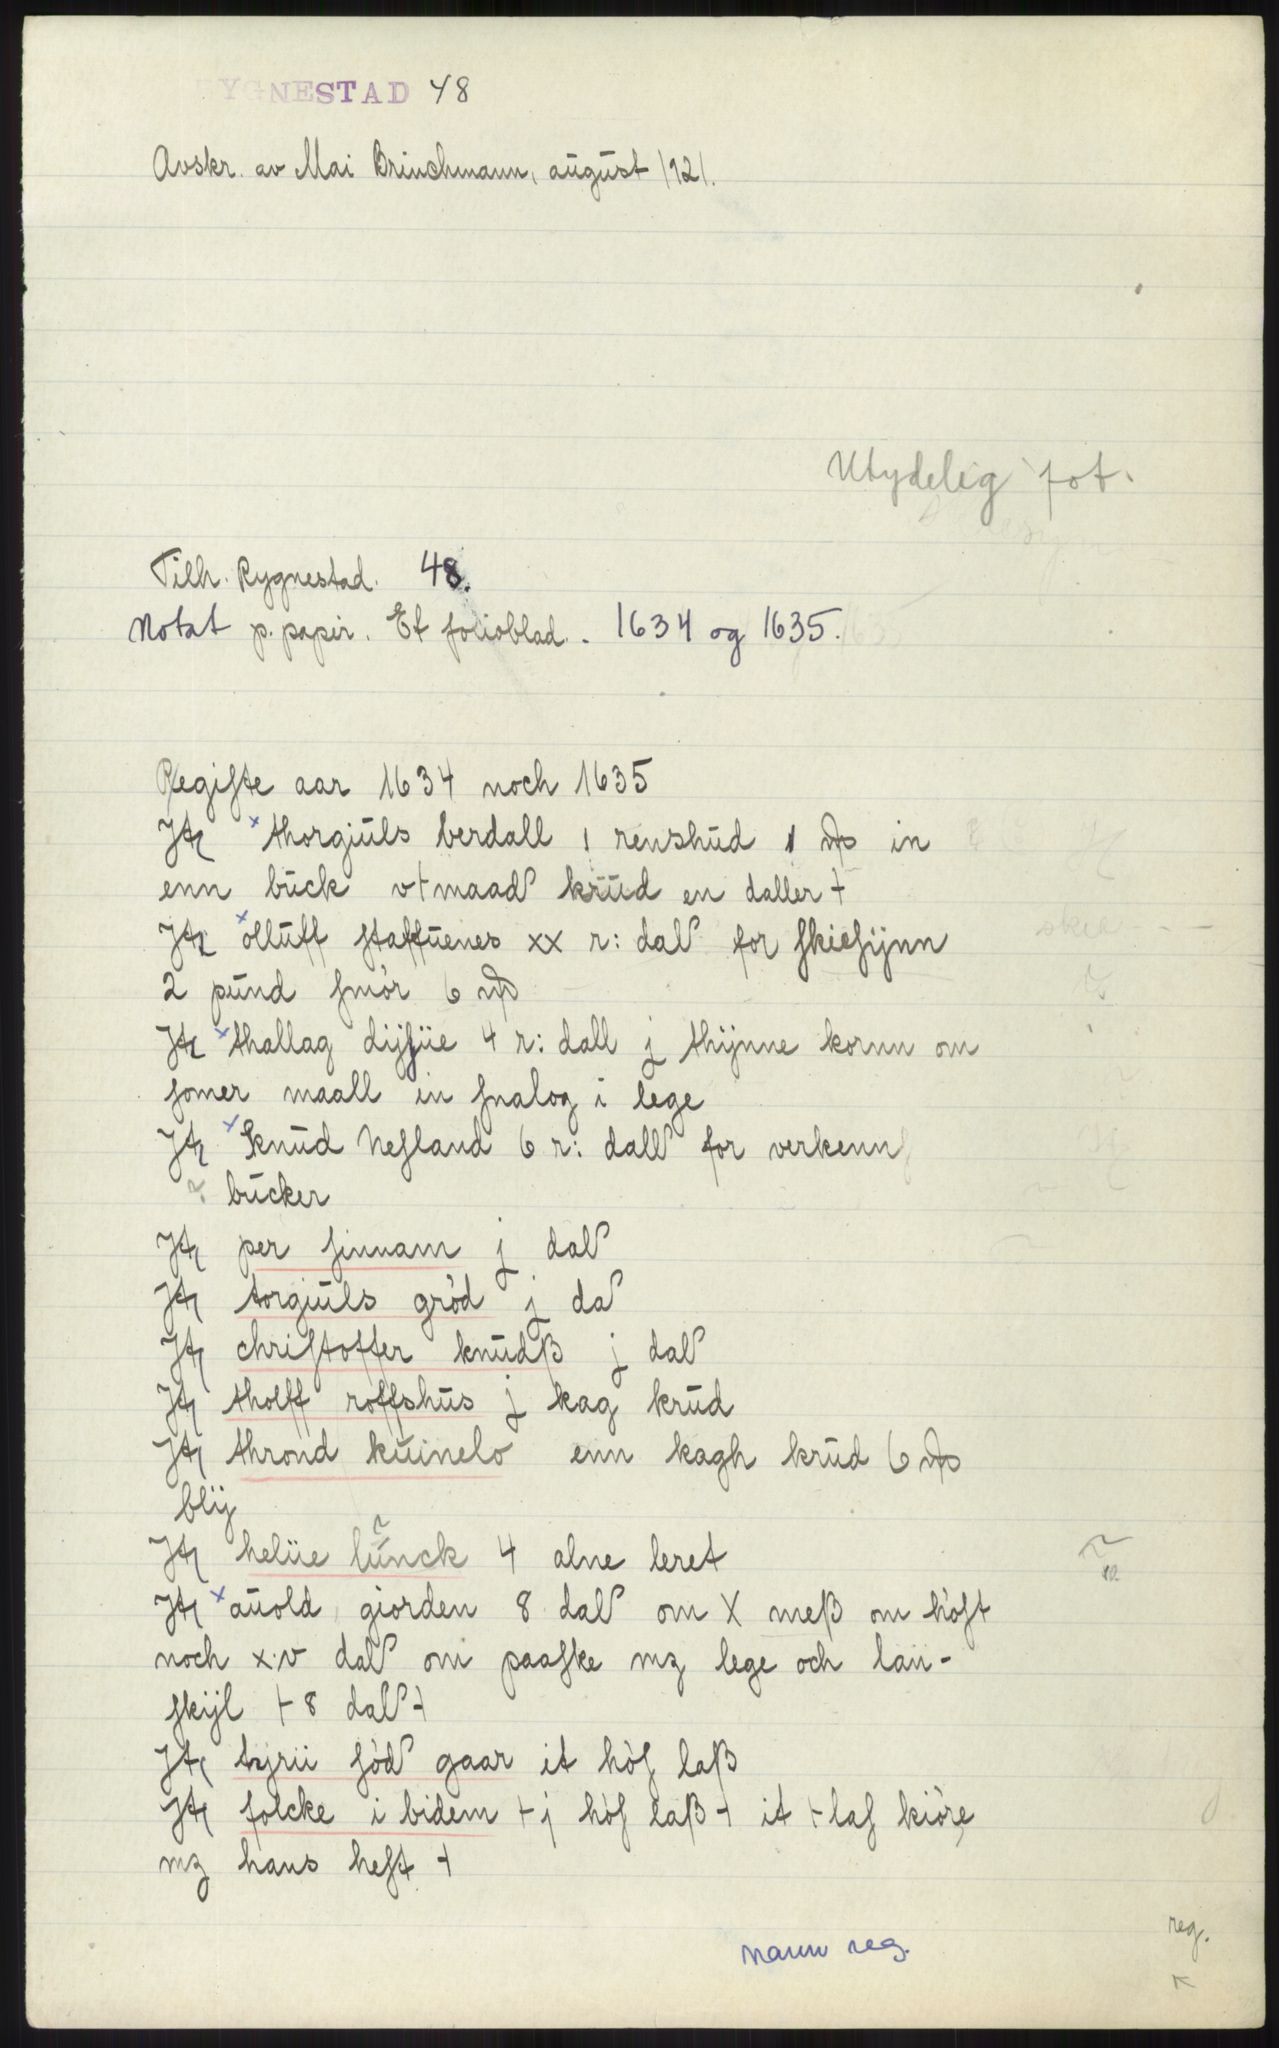 RYGNESTAD 48
Avskr. av Mai Brinchmann, august 1921.
Utydelig fot.
Tilh. Rygnestad. 48.
Notat p. papir. Et folioblad. 1634 og 1635.
Regiſte aar 1634 noch 1635
Jtʒ thorgiuls berdall 1 renshud 1 in
enn buck vt maad krud en daller +
Jtʒ olluff ſtaffuenes xx r: dal for ſkieſÿnn
2 pund ſmör 6
Jtʒ thallag dÿſüe 4 r: dall j thÿnne kornn om
ſomer maall in ſnalog i lege
Jtʒ knud Neſland 6 r: dall for verkenn
bucker
Jtʒ per ſinnam j dal
Jtʒ torgiuls gröd j da
Jtʒ chriſtoffer knudß j dal
Jtʒ tholff roffshus j kag krud
Jtʒ thrond kuinelo enn kagh krud 6
blÿ
Jtʒ helüe lunck 4 alne leret
Jtʒ auold giorden 8 dal om X meß om höſt
noch x.v dal om paaſke mʒ lege och lan-
ſkÿl + 8 dal +
Jtʒ tÿrii ſöd gaar it höſ laß
Jtʒ folcke i bidem + j höſ laß + it + laſ kiöre
mʒ hans heſt +
reg.
navn reg.